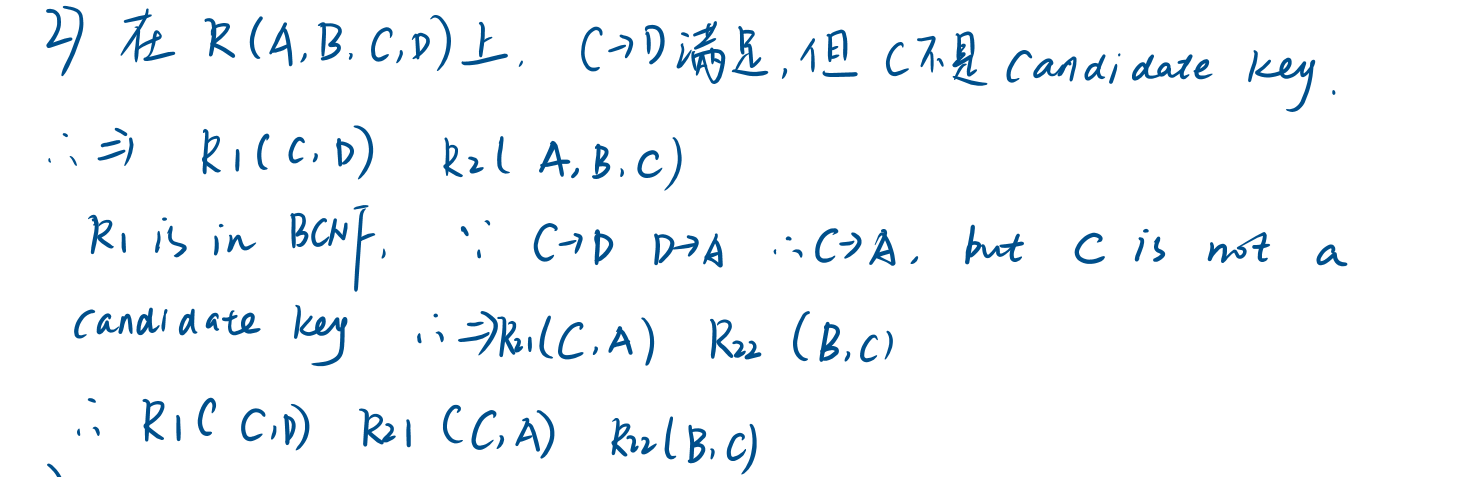 2) 在 R(A,B,C,D)上, C→D满足,但 C不是 candidate key.
∴⇒ R1(C,D) R2(A,B,C)
R1 is in BCNF, ∵ C→D D→A ∴C→A, but C is not a
candidate key ∴⇒R21(C,A) R22 (B,C)
∴ R1(C,D) R21 (C,A) R22(B,C)